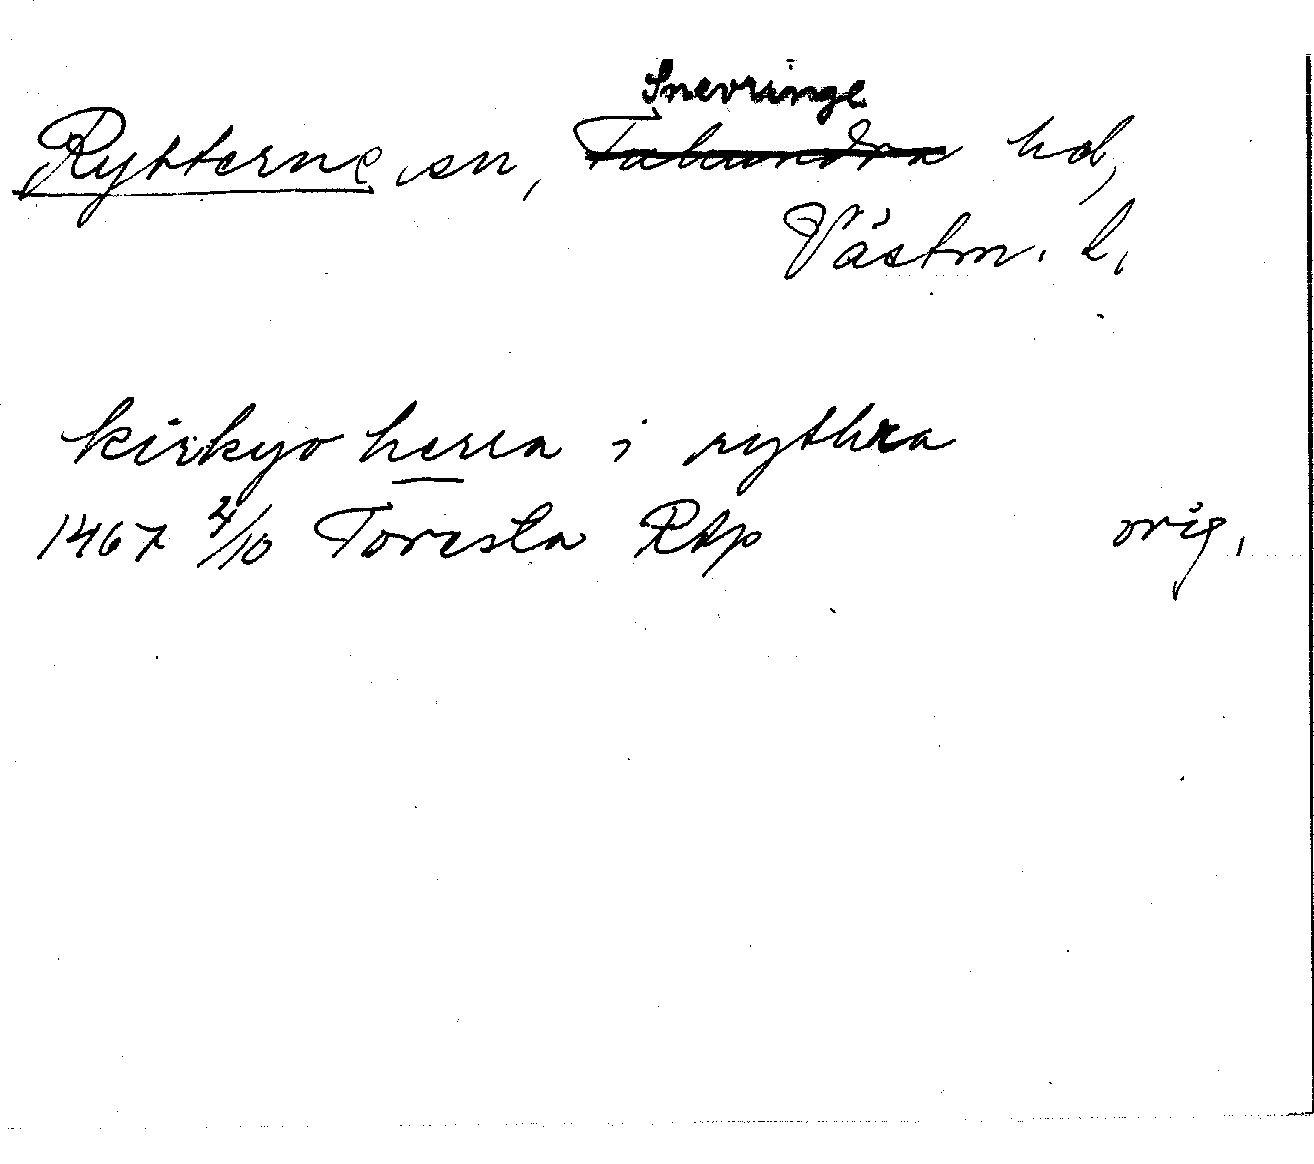 Snevringe
Rytterne, sn, Tuhundra hd,
Västm. l,
kirkyo herra i rythra
1467 4/10 Toresta RAp orig,